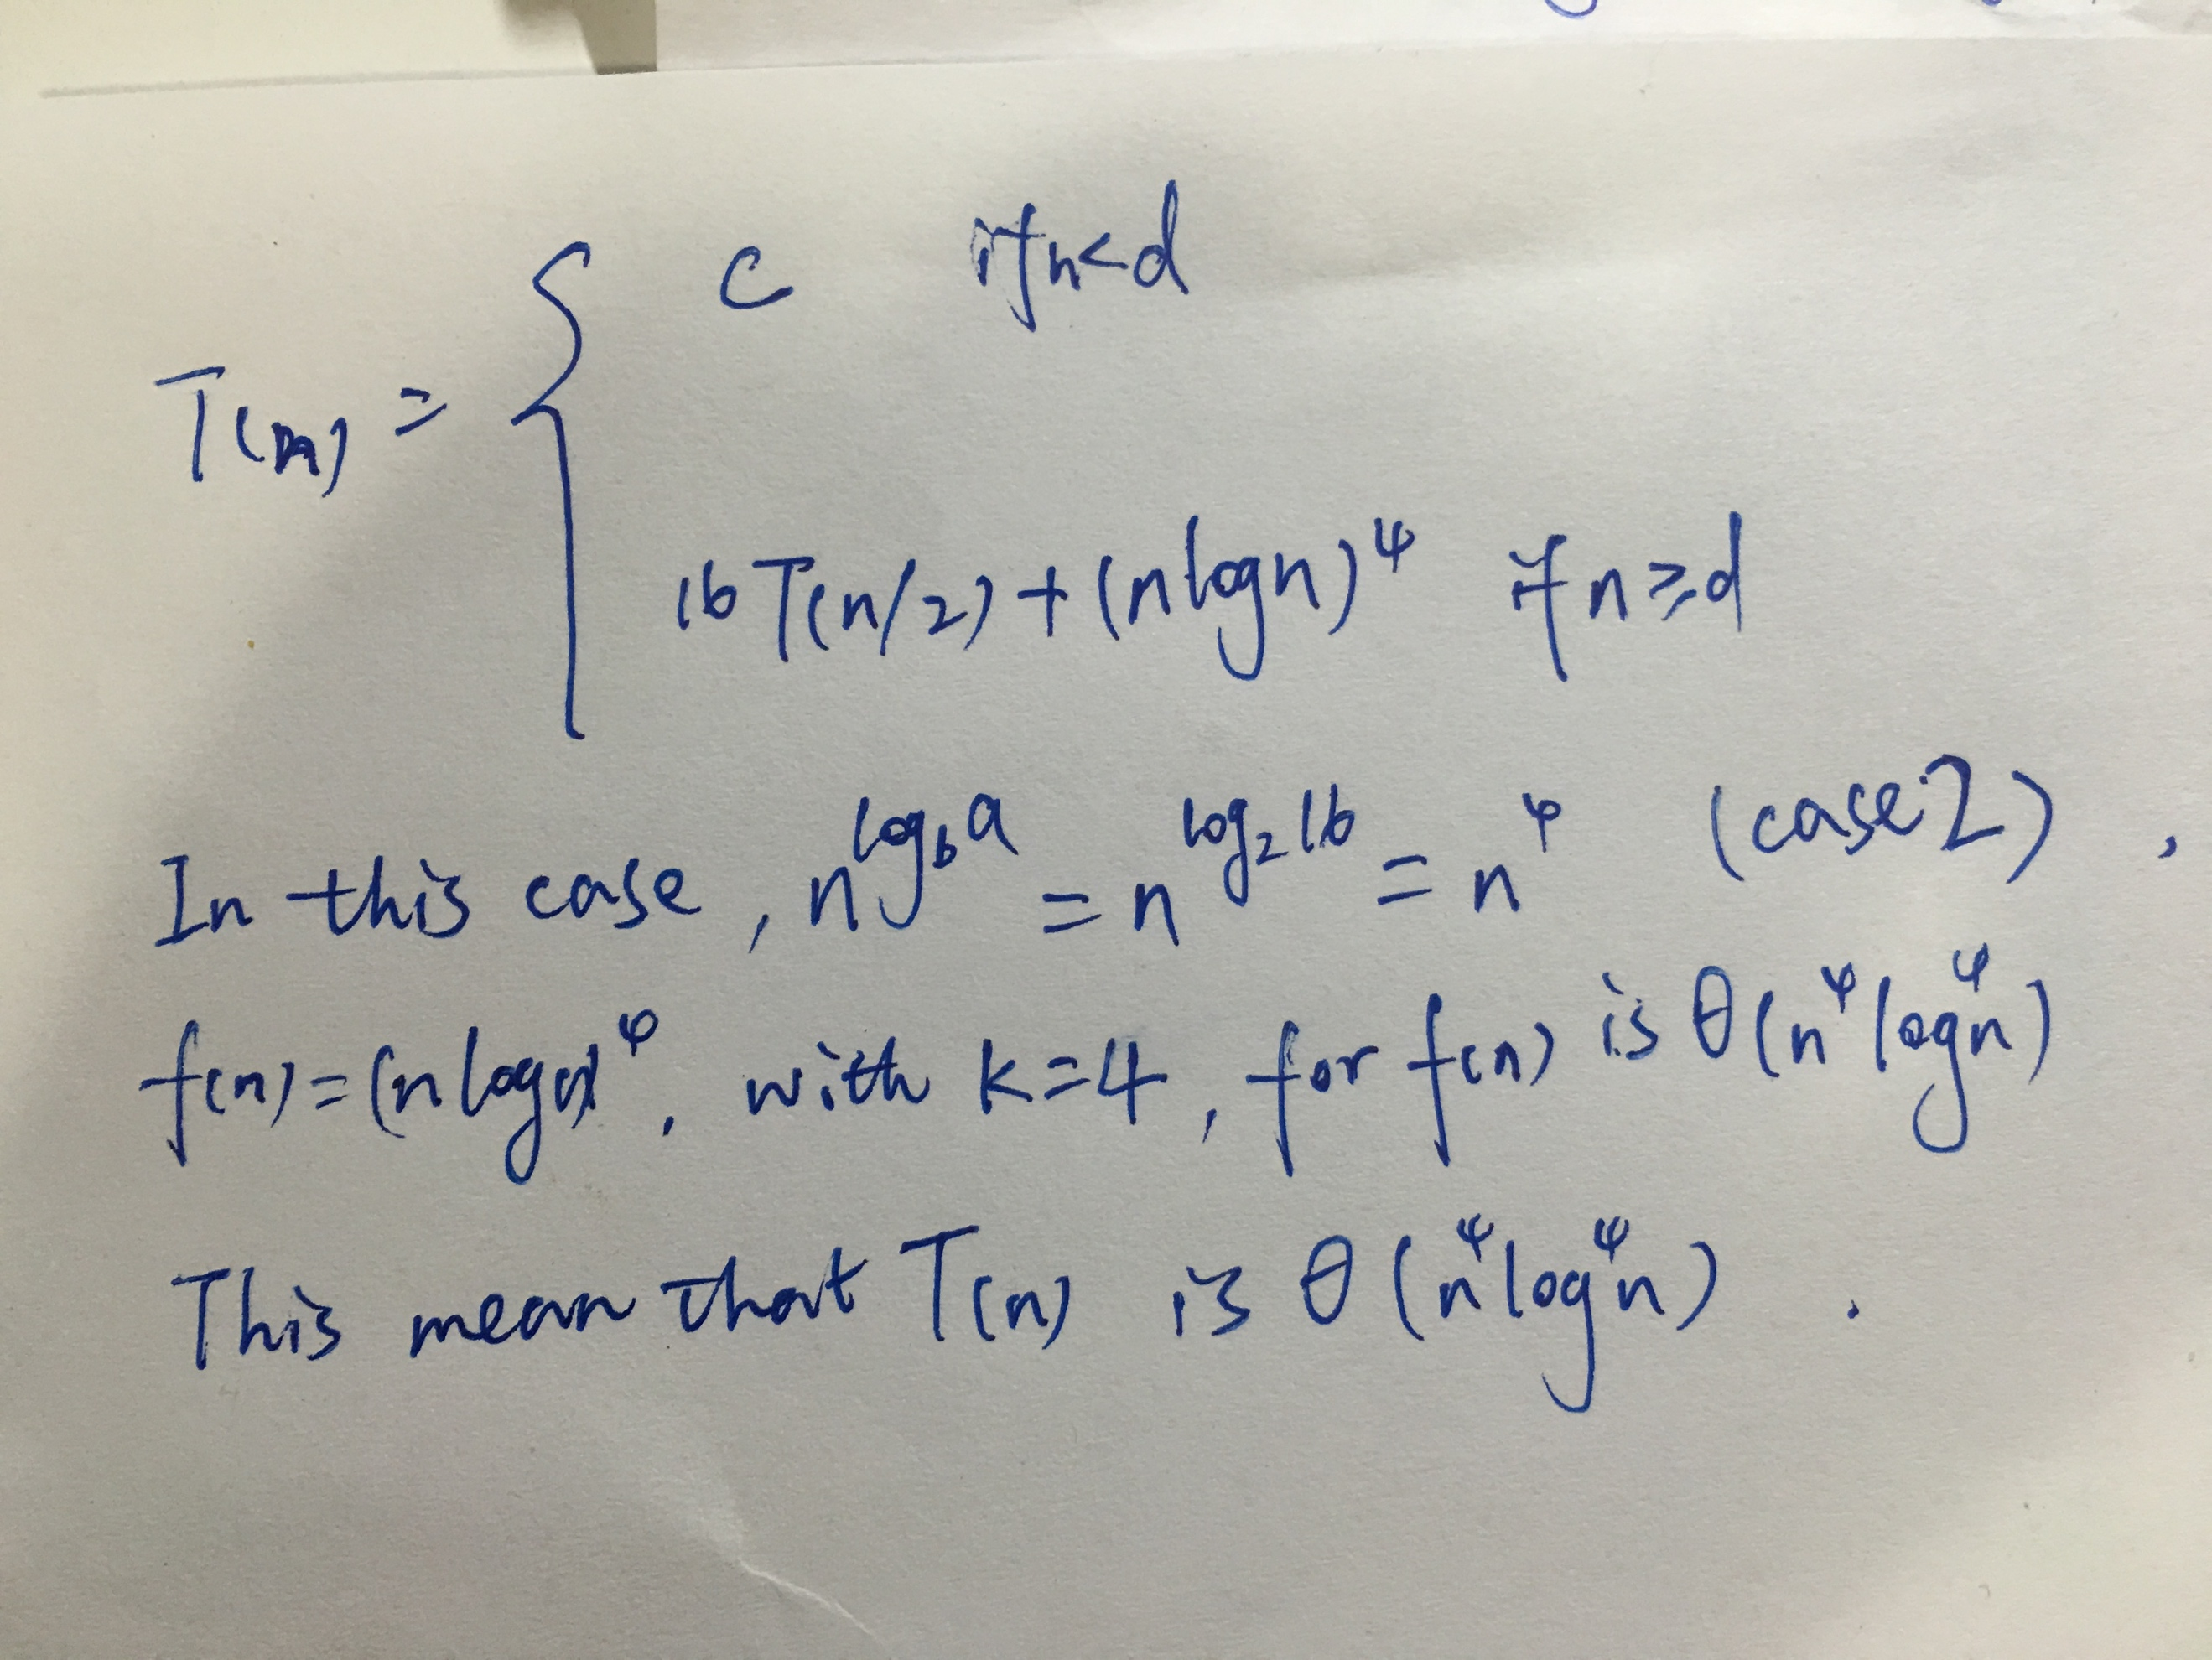 T(n) = { c if n<d
16T(n/2) + (n log n)⁴ if n≥d
In this case, n^(log_b a) = n^(log₂16) = n⁴ (case 2),
f(n)=(n log n)⁴, with k=4, for f(n) is θ(n⁴log⁴n)
This mean that T(n) is θ(n⁴log⁴n).